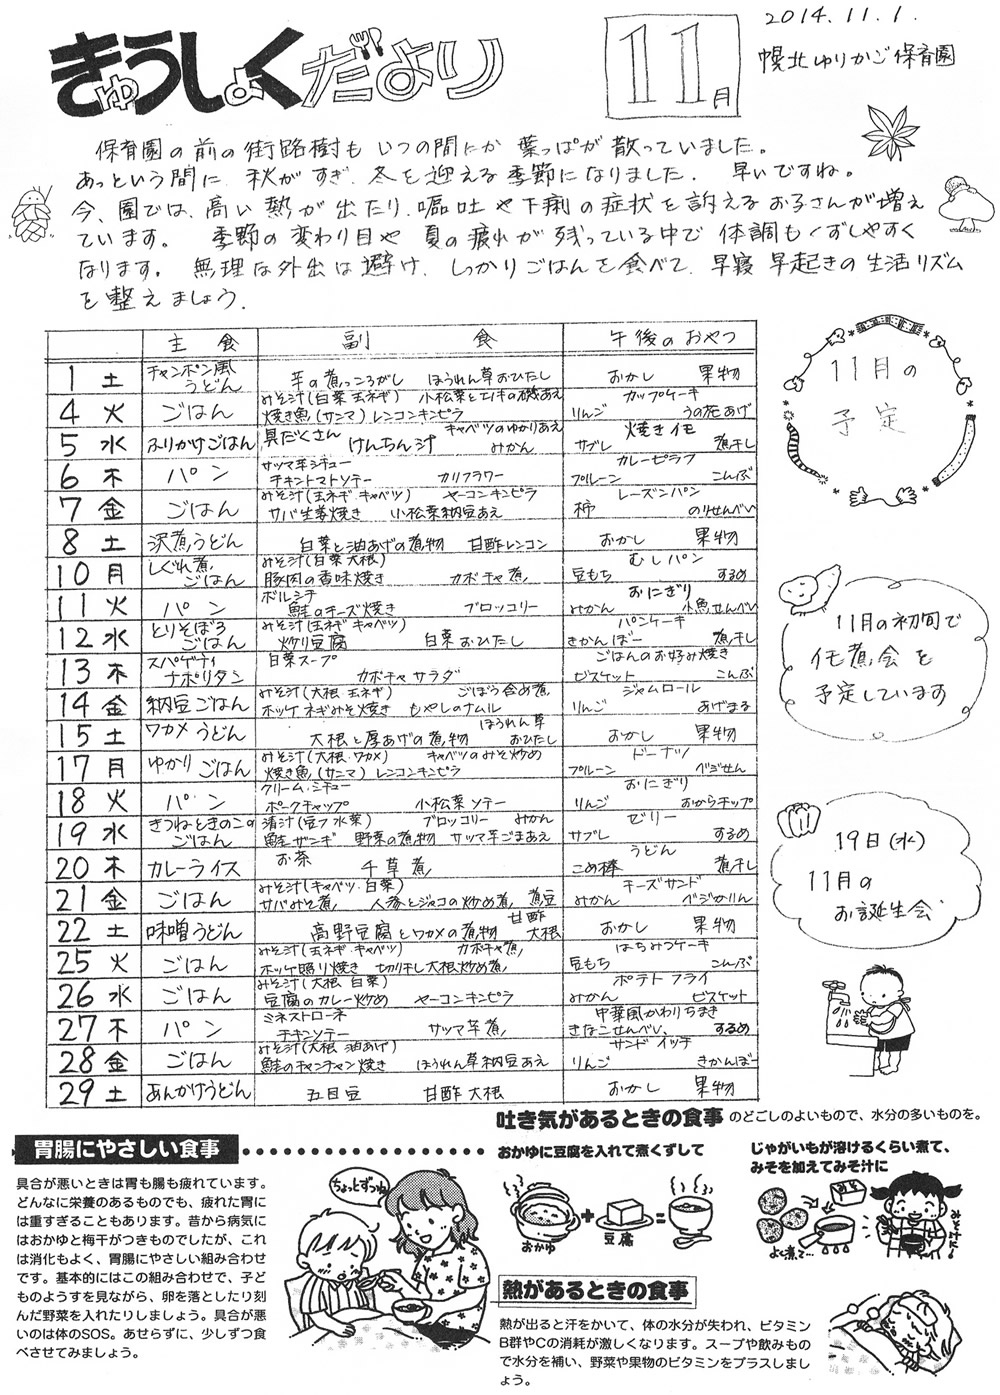 きゅうしょくだより
11月
2014.11.1.
幌北ゆりかご保育園
保育園の前の街路樹も いつの間にか 葉っぱが 散っていました。
あっという間に 秋がすぎ、冬を迎える季節になりました. 早いですね。
今、園では、高い熱が出たり、嘔吐や下痢の症状を訴えるお子さんが増え
ています。 季節の変わり目や 夏の疲れが 残っている中で 体調もくずしやすく
なります。 無理な外出は避け、しっかりごはんを食べて、早寝 早起きの生活リズム
を整えましょう.
主食 副食 午後のおやつ
1 土 チャンポン風うどん 芋の煮っころがし ほうれん草おひたし おかし 果物
4 火 ごはん みそ汁(白菜 玉ネギ) 小松菜とエノキの磯あえ カップケーキ
焼き魚(サンマ) レンコンキンピラ りんご うの花あげ
5 水 ふりかけごはん 具だくさん けんちん汁 キャベツのゆかりあえ みかん 焼きイモ
サブレ 煮干し
6 木 パン サツマ芋シチュー カレーピラフ
チキントマトソテー カリフラワー プルーン こんぶ
7 金 ごはん みそ汁(玉ネギ・キャベツ) ヤーコンキンピラ レーズンパン
サバ生姜焼き 小松菜納豆あえ 柿 のりせんべい
8 土 沢煮うどん 白菜と油あげの煮物 甘酢レンコン おかし 果物
10 月 しぐれ煮ごはん みそ汁(白菜 大根) むしパン
豚肉の香味焼き カボチャ煮 豆もち するめ
11 火 パン ボルシチ おにぎり
鮭のチーズ焼き ブロッコリー みかん 小魚せんべい
12 水 とりそぼろごはん みそ汁(玉ネギ キャベツ) パンケーキ
炒り豆腐 白菜おひたし きかんぼー 煮干し
13 木 スパゲティナポリタン 白菜スープ ごはんのお好み焼き
カボチャサラダ ビスケット こんぶ
14 金 納豆ごはん みそ汁(大根 玉ネギ) ごぼう含め煮 ジャムロール
ホッケネギみそ焼き もやしのナムル りんご あげまる
15 土 ワカメうどん 大根と厚あげの煮物 ほうれん草おひたし おかし 果物
17 月 ゆかりごはん みそ汁(大根・ワカメ) キャベツのみそ炒め ドーナッツ
焼き魚(サンマ) レンコンキンピラ プルーン ベジせん
18 火 パン クリームシチュー おにぎり
ポークチャップ 小松菜ソテー りんご おからチップ
19 水 きつねときのこのごはん 清汁(豆フ 水菜) ブロッコリー みかん ゼリー
鮭ザンギ 野菜の煮物 サツマ芋ごまあえ サブレ するめ
20 木 カレーライス お茶 千草煮 うどん
こめ棒 煮干し
21 金 ごはん みそ汁(キャベツ・白菜) チーズサンド
サバみそ煮 人参とジャコの炒め煮 煮豆 みかん ベジかりん
22 土 味噌うどん 高野豆腐とワカメの煮物 甘酢大根 おかし 果物
25 火 ごはん みそ汁(玉ネギ・キャベツ) カボチャ煮 はちみつケーキ
ホッケ照り焼き 切り干し大根炒め煮 豆もち こんぶ
26 水 ごはん みそ汁(大根 白菜) ポテトフライ
豆腐のカレー炒め ヤーコンキンピラ みかん ビスケット
27 木 パン ミネストローネ 中華風かわりちまき
チキンソテー サツマ芋煮 きなこせんべい するめ
28 金 ごはん みそ汁(大根 油あげ) サンドイッチ
鮭のチャンチャン焼き ほうれん草納豆あえ りんご きかんぼー
29 土 あんかけうどん 五目豆 甘酢大根 おかし 果物
11月の
予定
11月の初旬で
芋煮会を
予定しています
19日(水)
11月の
お誕生会
胃腸にやさしい食事
具合が悪いときは胃も腸も疲れています。
どんなに栄養のあるものでも、疲れた胃に
は重すぎることもあります。昔から病気に
はおかゆと梅干がつきものでしたが、これ
は消化もよく、胃腸にやさしい組み合わせ
です。基本的にはこの組み合わせで、子ど
ものようすを見ながら、卵を落としたり刻
んだ野菜を入れたりしましょう。具合が悪
いのは体のSOS。あせらずに、少しずつ食
べさせてみましょう。
ちょっとずつね
吐き気があるときの食事 のどごしのよいもので、水分の多いものを。
おかゆに豆腐を入れて煮くずして
おかゆ + 豆腐 =
じゃがいもが溶けるくらい煮て、
みそを加えてみそ汁に
よく煮て…
みそ汁だよ!
熱があるときの食事
熱が出ると汗をかいて、体の水分が失われ、ビタミン
B群やCの消耗が激しくなります。スープや飲みもの
で水分を補い、野菜や果物のビタミンをプラスしまし
ょう。